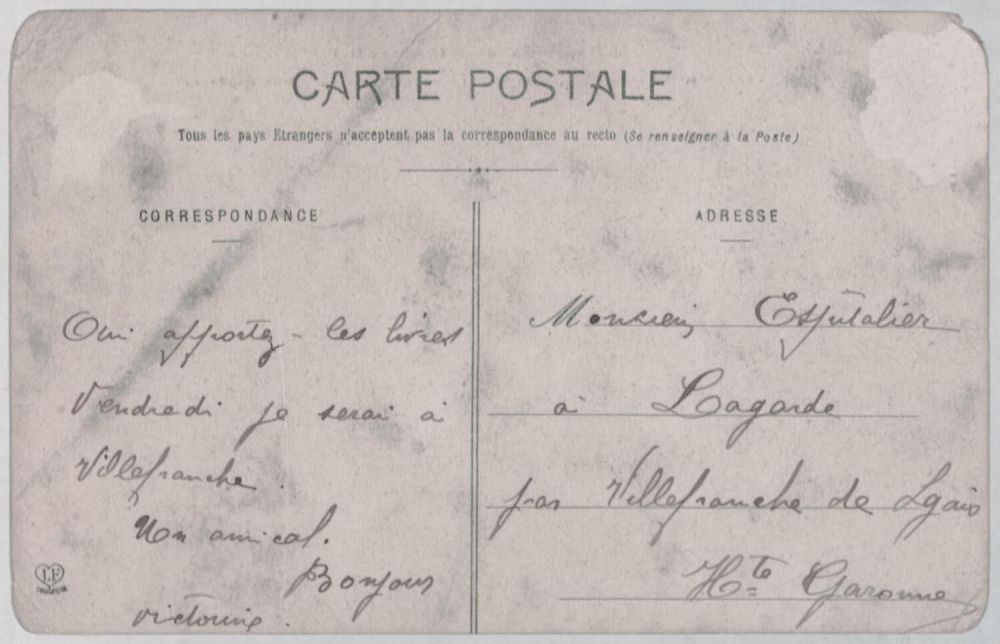 CARTE POSTALE
Tous les pays Etrangers n'acceptent pas la correspondance au recto (Se renseigner à la Poste)
CORRESPONDANCE
Oui apportez-les livres
Vendredi je serai à
Villefranche.
Un amical.
Bonjour
Victorine.
LF
TOULOUSE
ADRESSE
Monsieur Espitalier
à Lagarde
par Villefranche de Lgais
Hte Garonne